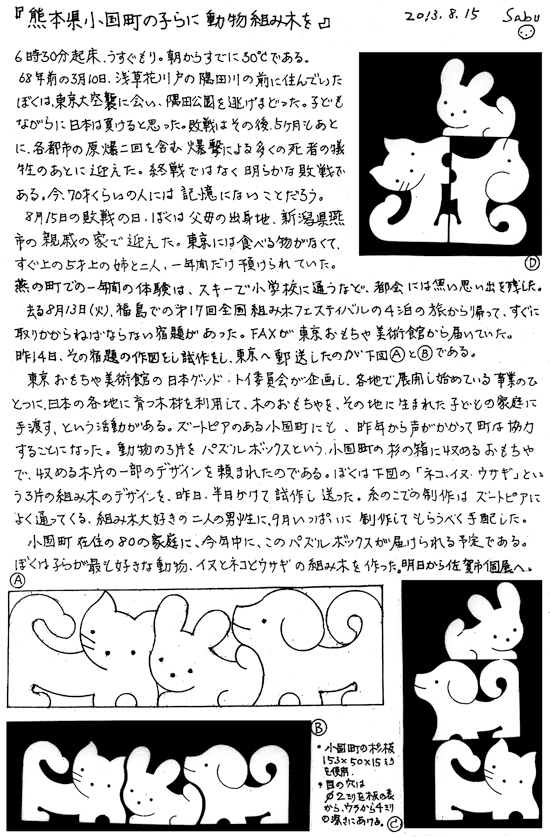 『熊本県小国町の子らに動物組み木を』
2013.8.15 Sabu
6時30分起床、うすぐもり。朝からすでに30℃である。
68年前の3月10日、浅草花川戸の隅田川の前に住んでいた
ぼくは、東京大空襲に会い、隅田公園を逃げまどった。子ども
ながらに日本は負けると思った。敗戦はその後、5ヶ月もあと
に、各都市の原爆二回を含む爆撃による多くの死者の犠
牲のあとに迎えた。終戦ではなく明らかな敗戦で
ある。今、70才くらいの人には記憶にないことだろう。
8月15日の敗戦の日、ぼくは父母の出身地、新潟県燕
市の親戚の家で迎えた。東京には食べる物がなくて、
すぐ上の5才上の姉と二人、一年間だけ預けられていた。
燕の町での一年間の体験は、スキーで小学校に通うなど、都会には無い思い出を残した。
去る8月13日(火)、福島での第17回全国組み木フェスティバルの4泊の旅から帰って、すぐに
取りかからねばならない宿題があった。FAXが東京おもちゃ美術館から届いていた。
昨14日、その宿題の作図をし試作をし、東京へ郵送したのが下図ⒶとⒷである。
東京おもちゃ美術館の日本グッド・トイ委員会が企画し、各地で展開し始めている事業のひ
とつに、日本の各地に育つ木材を利用して、木のおもちゃを、その地に生まれた子どもの家庭に
手渡す、という活動がある。ズートピアのある小国町にも、昨年から声がかかって町は協力
することになった。動物の3片をパズルボックスという、小国町の杉の箱に収めるおもちゃ
で、収める木片の一部のデザインを頼まれたのである。ぼくは下図の「ネコ、イヌ、ウサギ」とい
う3片の組み木のデザインを、昨日、半日かけて試作し送った。糸のこでの制作はズートピアに
よく通ってくる、組み木大好きの二人の男性に、9月いっぱいに制作してもらうべく手配した。
小国町在住の80の家庭に、今年中に、このパズルボックスが届けられる予定である。
ぼくは子らが最も好きな動物、イヌとネコとウサギの組み木を作った。明日から佐賀市個展へ。
Ⓓ
Ⓐ
Ⓑ
・小国町の杉板
153×50×15ミリ
を使用.
・目の穴は
φ2ミリを板の表
から、ウラから4ミリ
の深さにあける。
Ⓒ